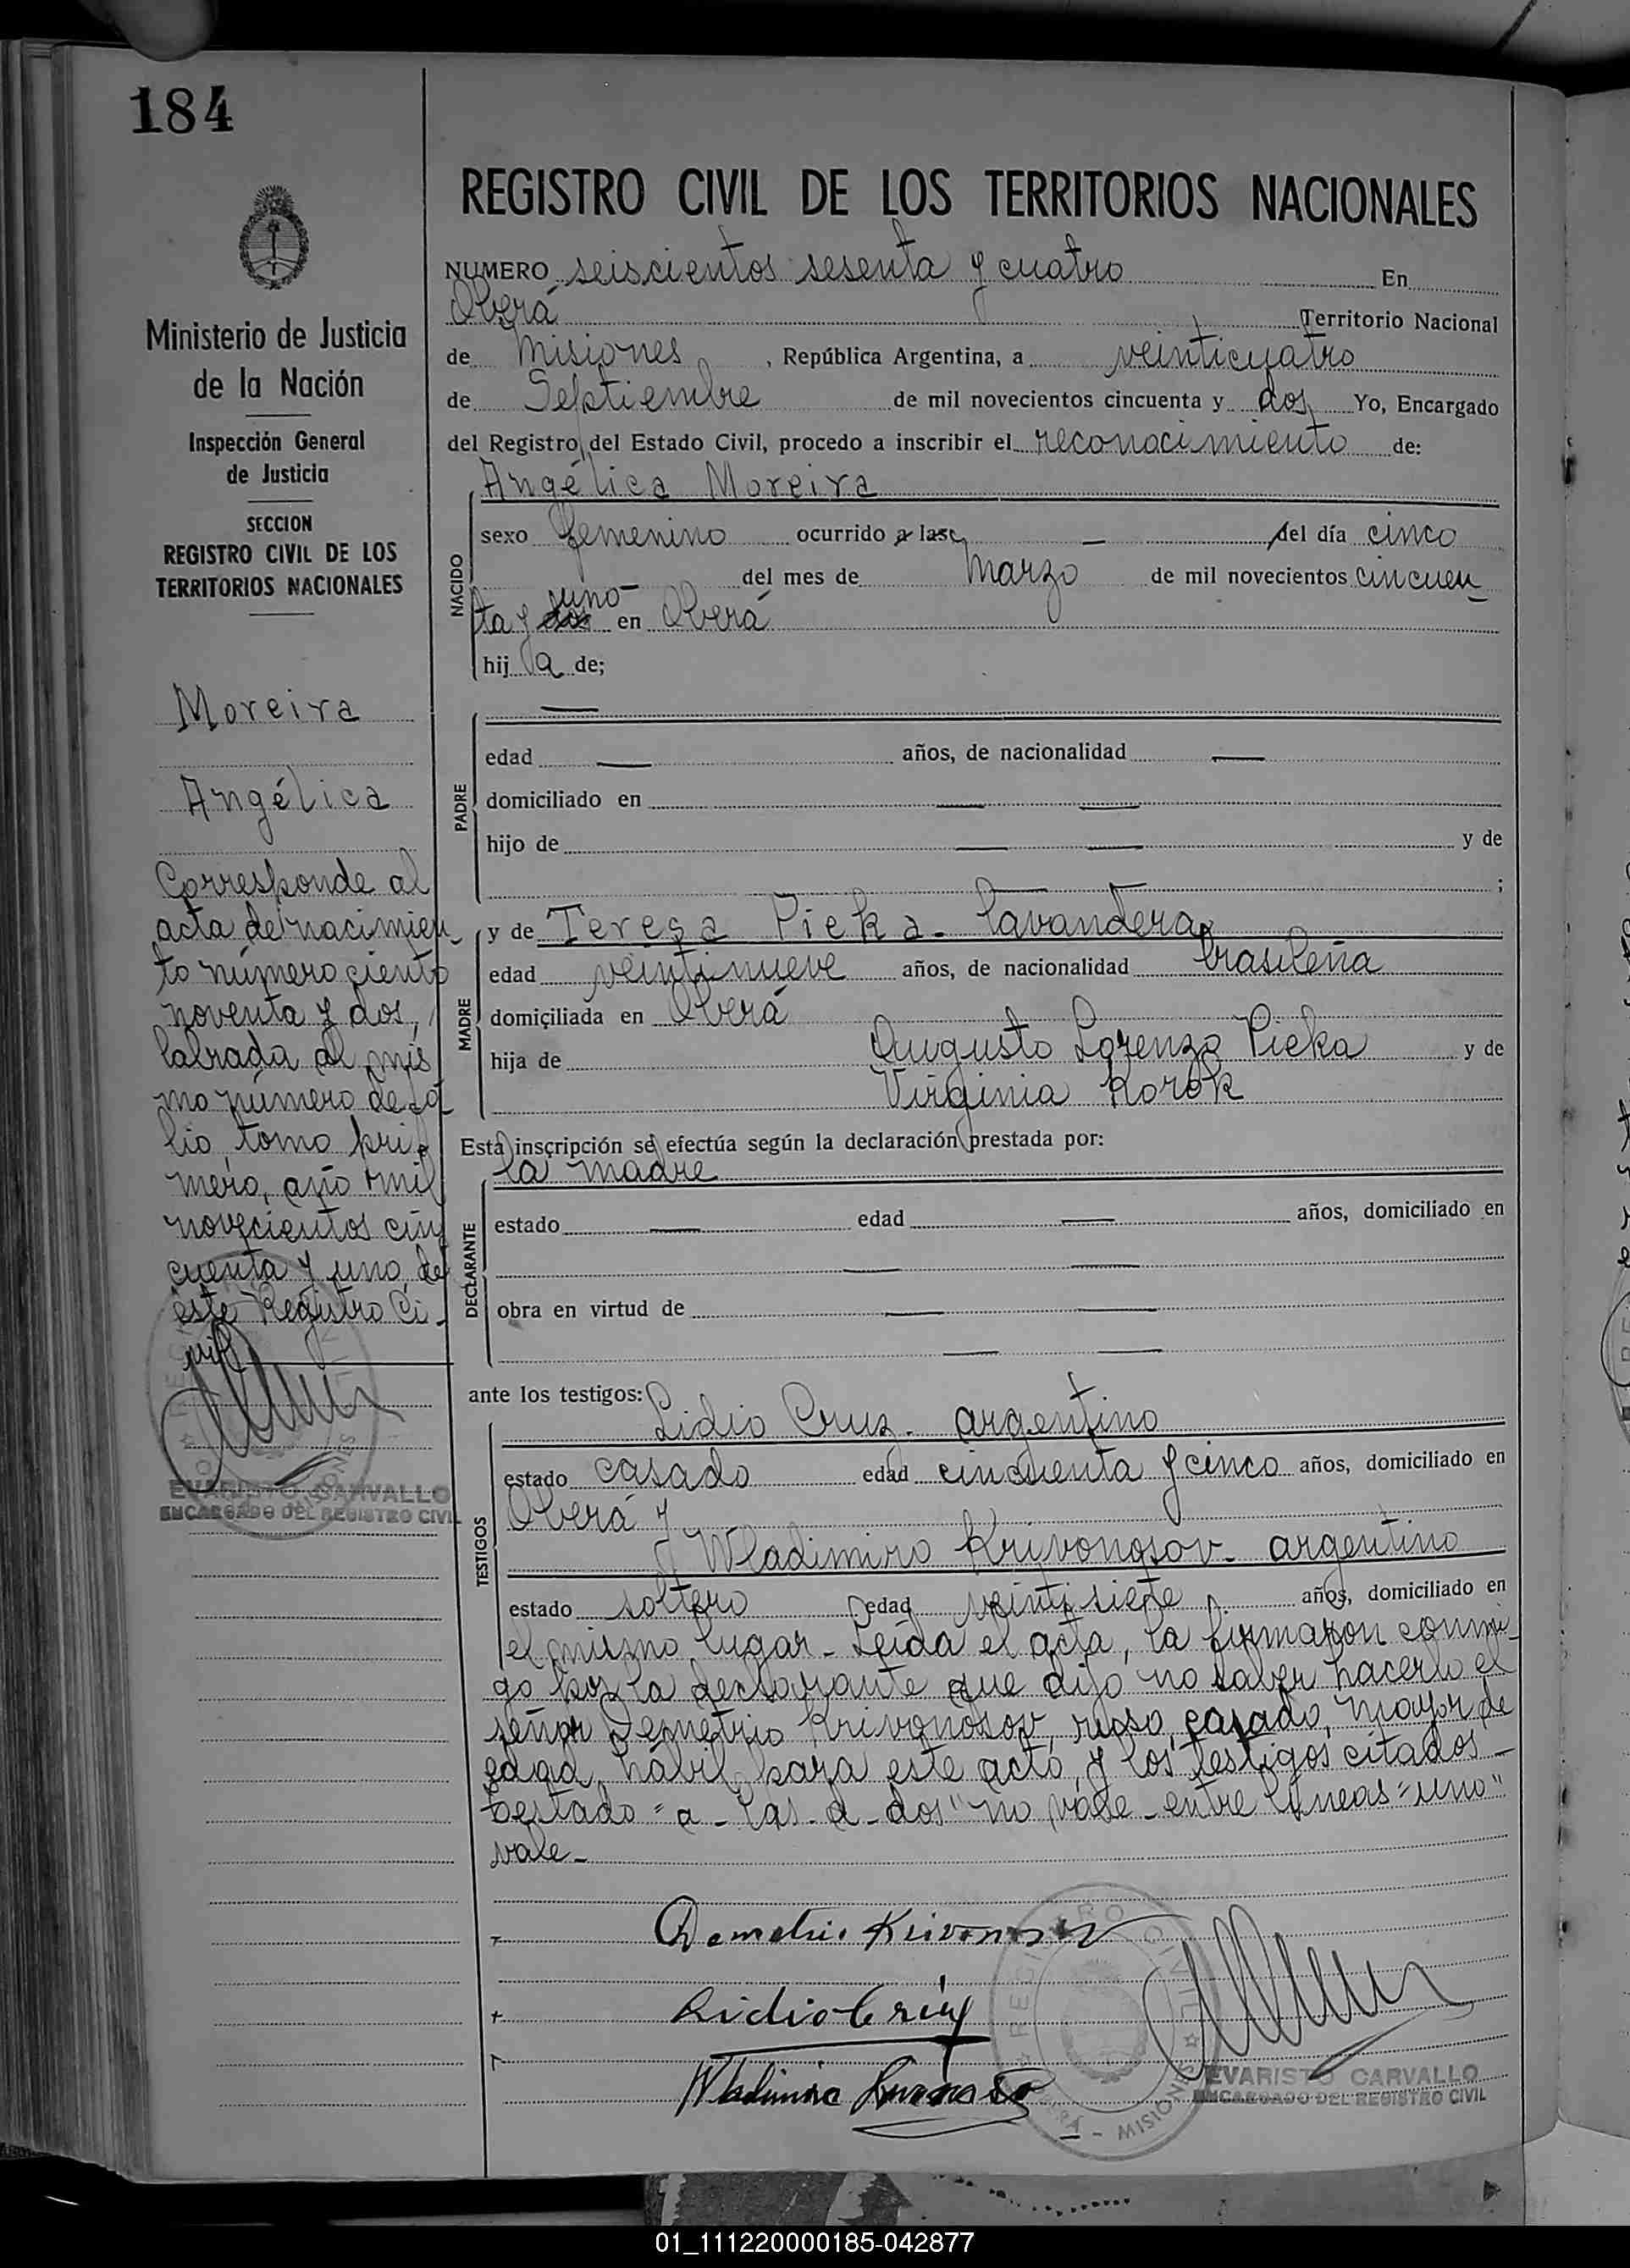 184
REGISTRO CIVIL DE LOS TERRITORIOS NACIONALES
Ministerio de Justicia
de la Nación
Inspección General
de Justicia
SECCION
REGISTRO CIVIL DE LOS
TERRITORIOS NACIONALES
Moreira
Angélica
Corresponde al
acta de nacimien-
to número ciento
noventa y dos,
labrada al mis
mo número de fo
lio, tomo pri-
mero, año mil
novecientos cin
cuenta y uno, de
este Registro Ci-
vil
EVARISTO CARVALLO
ENCARGADO DEL REGISTRO CIVIL
NUMERO seiscientos sesenta y cuatro En
Oberá Territorio Nacional
de Misiones, República Argentina, a veinticuatro
de Septiembre de mil novecientos cincuenta y dos Yo, Encargado
del Registro del Estado Civil, procedo a inscribir el reconocimiento de:
Angélica Moreira
NACIDO
sexo femenino ocurrido a las — del día cinco
del mes de Marzo de mil novecientos cincuen-
uno
ta y dos en Oberá
hij a de;
PADRE
—
edad — años, de nacionalidad —
domiciliado en — —
hijo de — — y de
— — ;
MADRE
y de Teresa Pieka - lavandera
edad veintinueve años, de nacionalidad brasileña
domiciliada en Oberá
hija de Augusto Lorenzo Pieka y de
Virginia Korok
Esta inscripción se efectúa según la declaración prestada por:
la madre
DECLARANTE
estado — edad — años, domiciliado en
— —
obra en virtud de — —
— —
ante los testigos:
TESTIGOS
Lidio Cruz - argentino
estado casado edad cincuenta y cinco años, domiciliado en
Oberá y
Wladimiro Krivonosov - argentino
estado soltero edad veintisiete años, domiciliado en
el mismo lugar - Leída el acta, la firmaron conmi-
go por la declarante que dijo no saber hacerlo el
señor Demetrio Krivonosov, ruso, casado, mayor de
edad, hábil para este acto, y los testigos citados -
Testado "a - las - d - dos" no vale - entre líneas "uno"
vale -
Demetrio Krivonosov
Lidio Cruz
Wladimiro Krivonosov
REGISTRO CIVIL
MISIONES
EVARISTO CARVALLO
ENCARGADO DEL REGISTRO CIVIL
01_111220000185-042877